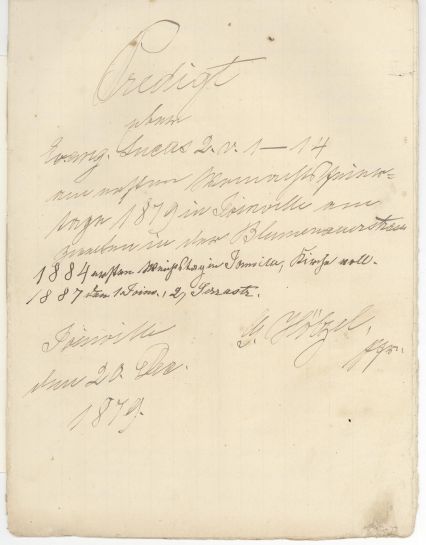 Predigt
über
Evang. Lucas 2. v. 1–14
am ersten Weinachtsfeier-
tage 1879 in Joinville am
zweiten in der Blumenauerstrasse
1884 ersten Weichtstag in Joinville, Kirche voll.
1887 den 1 Joinv., 2, Serrastr.
Joinville
den 20 Dec.
1879.
G. Hölzel,
Pfr.